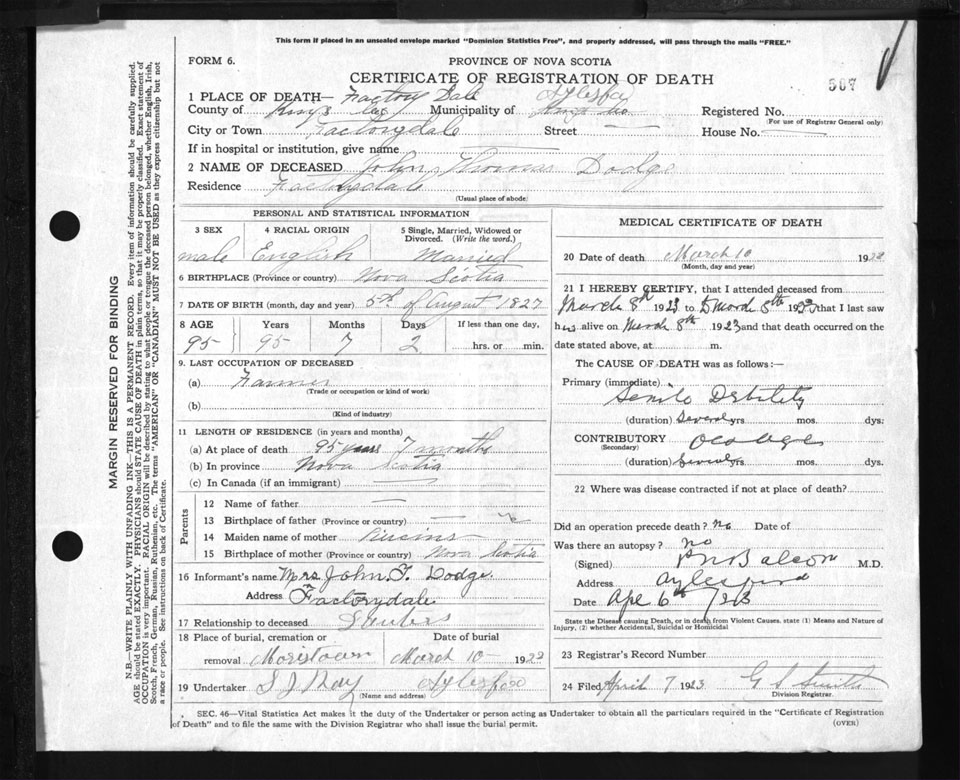 This form if placed in an unsealed envelope marked "Dominion Statistics Free", and properly addressed, will pass through the mails "FREE."
FORM 6.
PROVINCE OF NOVA SCOTIA
CERTIFICATE OF REGISTRATION OF DEATH
507
1 PLACE OF DEATH— Factory Dale Aylesford
County of Kings Municipality of Kings Co Registered No.
(For use of Registrar General only)
City or Town Factorydale Street — House No. —
If in hospital or institution, give name
2 NAME OF DECEASED John Thomas Dodge
Residence Factorydale
(Usual place of abode)
PERSONAL AND STATISTICAL INFORMATION
3 SEX 4 RACIAL ORIGIN 5 Single, Married, Widowed or Divorced. (Write the word.)
male English Married
6 BIRTHPLACE (Province or country) Nova Scotia
7 DATE OF BIRTH (month, day and year) 5th of August 1827
8 AGE Years Months Days If less than one day,
95 95 7 2 hrs. or min.
9. LAST OCCUPATION OF DECEASED
(a) Farmer
(Trade or occupation or kind of work)
(b)
(Kind of industry)
11 LENGTH OF RESIDENCE (in years and months)
(a) At place of death 95 years 7 months
(b) In province Nova Scotia
(c) In Canada (if an immigrant) —
Parents
12 Name of father —
13 Birthplace of father (Province or country) —
14 Maiden name of mother
15 Birthplace of mother (Province or country) Nova Scotia
16 Informant's name Mrs John T. Dodge.
Address Factorydale
17 Relationship to deceased
18 Place of burial, cremation or removal Date of burial
Moristown March 10 — 192
19 Undertaker S J Ray Aylesford
(Name and address)
MEDICAL CERTIFICATE OF DEATH
20 Date of death March 10 192
(Month, day and year)
21 I HEREBY CERTIFY, that I attended deceased from
March 8th 1923 to March 8th 1923 that I last saw
him alive on March 8th 1923 and that death occurred on the
date stated above, at m.
The CAUSE OF DEATH was as follows:—
Primary (immediate)
Senile Debility
(duration) Several yrs. mos. dys.
CONTRIBUTORY Old age
(Secondary)
(duration) Several yrs. mos. dys.
22 Where was disease contracted if not at place of death?
Did an operation precede death? no Date of
Was there an autopsy? no
(Signed) Balcom M.D.
Address Aylesford
Date Apl 6th /23
State the Disease causing Death, or in death from Violent Causes, state (1) Means and Nature of
Injury, (2) whether Accidental, Suicidal or Homicidal
23 Registrar's Record Number
24 Filed April 7 1923 G S Smith
Division Registrar.
SEC. 46—Vital Statistics Act makes it the duty of the Undertaker or person acting as Undertaker to obtain all the particulars required in the "Certificate of Registration
of Death" and to file the same with the Division Registrar who shall issue the burial permit.
(OVER)
MARGIN RESERVED FOR BINDING
N.B.—WRITE PLAINLY WITH UNFADING INK—THIS IS A PERMANENT RECORD. Every item of information should be carefully supplied.
AGE should be stated EXACTLY. PHYSICIANS should STATE CAUSE OF DEATH in plain terms, so that it may be properly classified. Exact statement of
OCCUPATION is very important. RACIAL ORIGIN will be described by stating to what people or tongue the deceased person belonged, whether English, Irish,
Scotch, French, German, Russian, Ruthenian, etc. The terms "AMERICAN" OR "CANADIAN" MUST NOT BE USED as they express citizenship but not
a race or people. See instructions on back of Certificate.